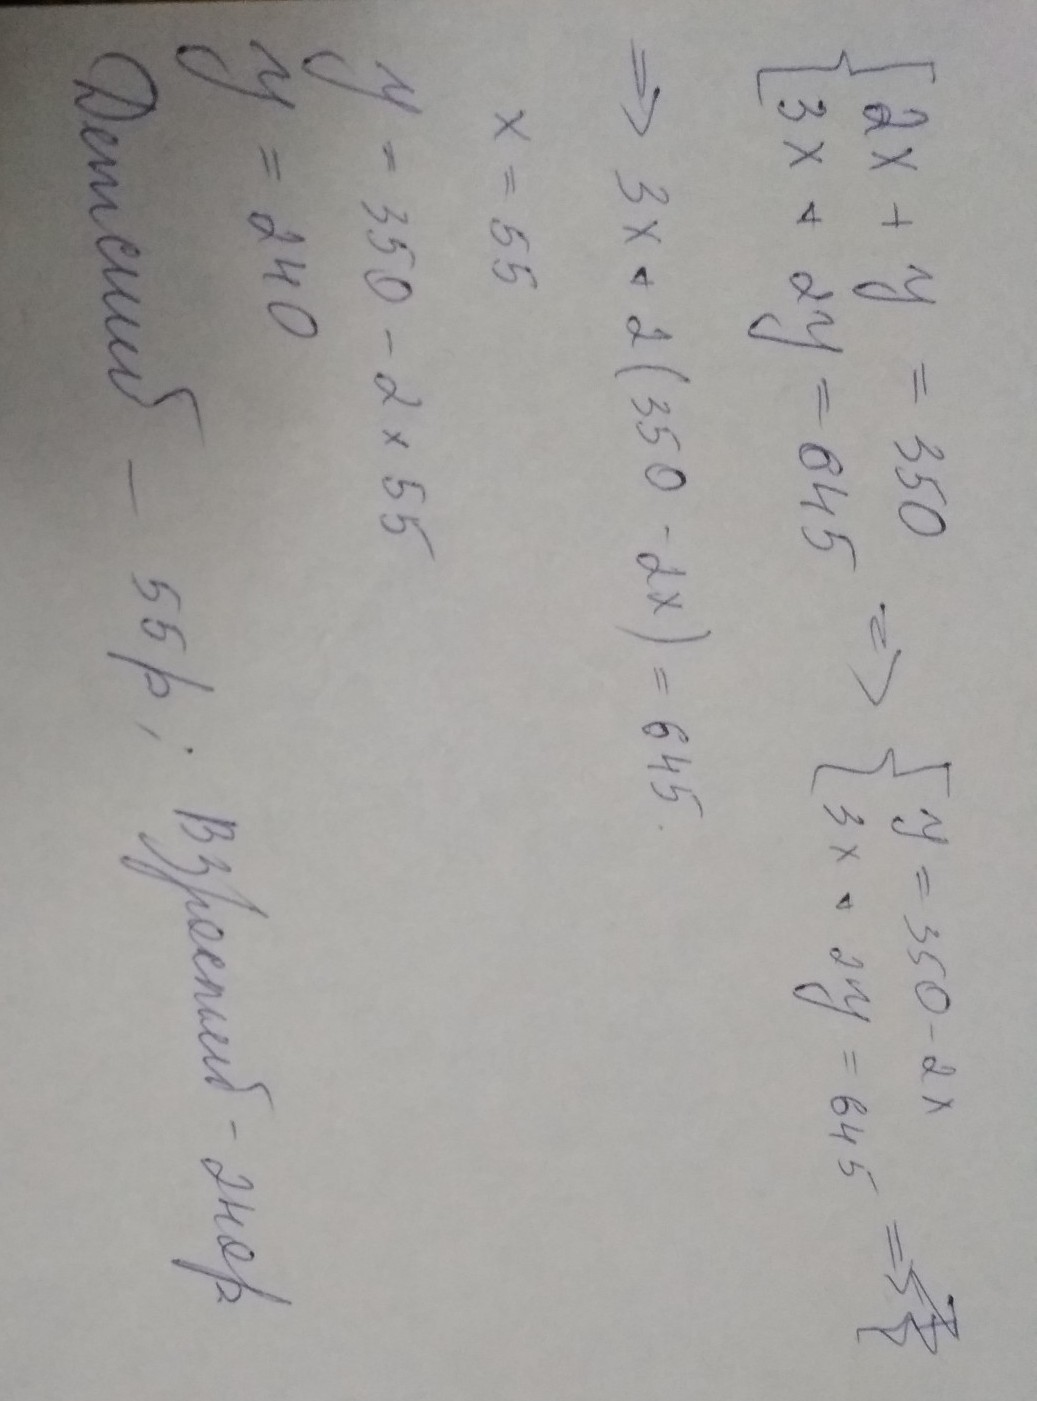 { 2x + y = 350
3x + 2y = 645 => { y = 350 - 2x
3x + 2y = 645 =>
=> 3x + 2(350 - 2x) = 645.
x = 55
y = 350 - 2 x 55
y = 240
Детский — 55р; Взрослый - 240р